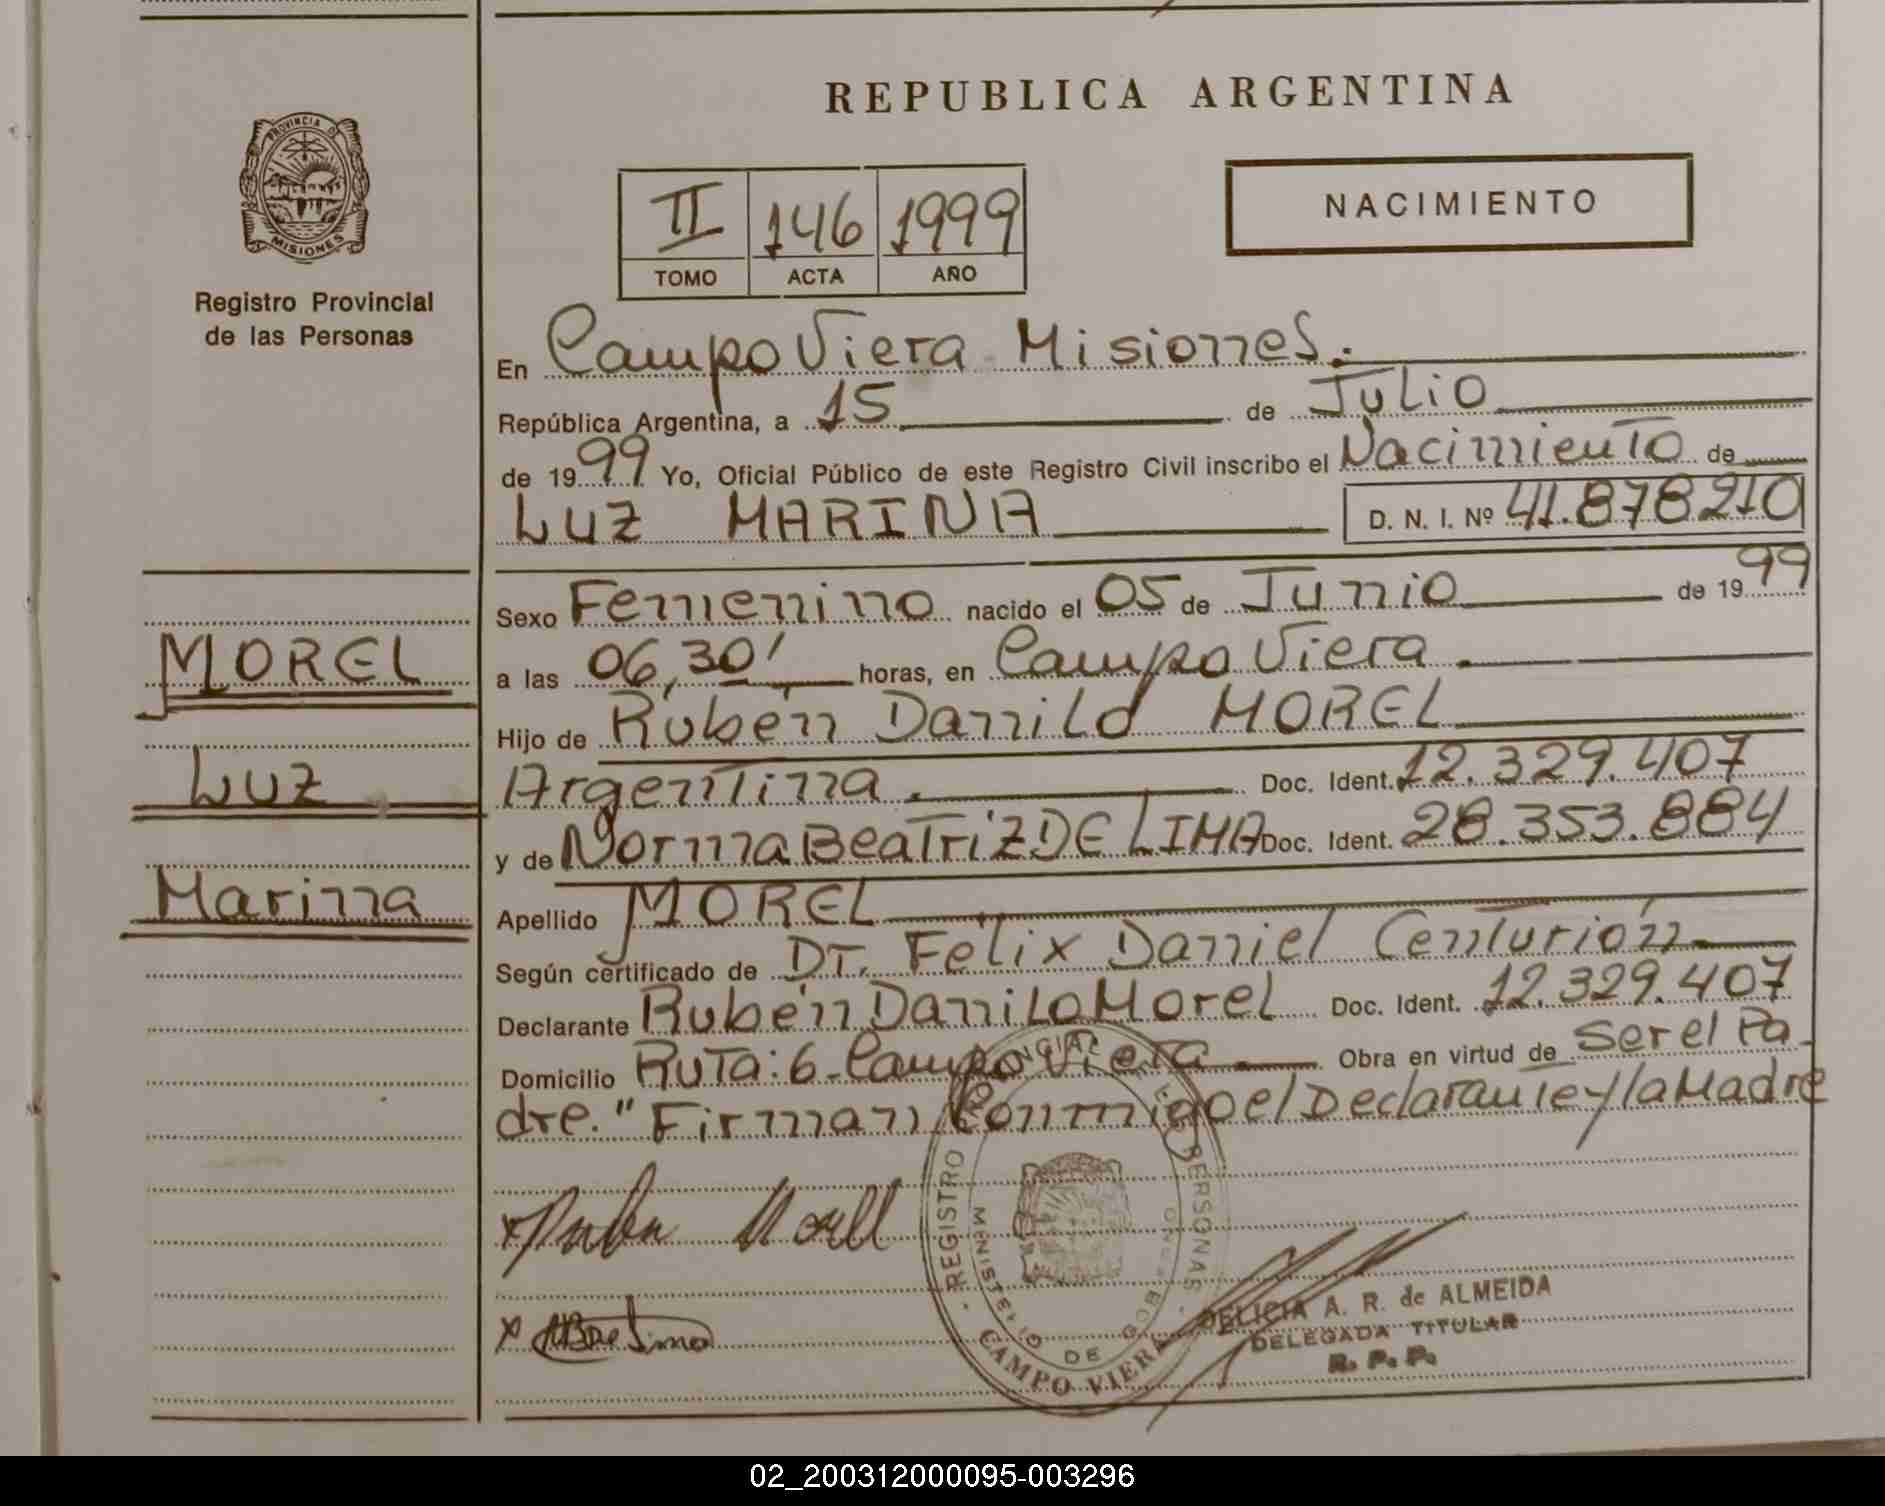 REPUBLICA ARGENTINA
PROVINCIA DE
MISIONES
Registro Provincial
de las Personas
II 146 1999
TOMO ACTA AÑO
NACIMIENTO
En Campo Viera Misiones.
República Argentina, a 15 de Julio
de 1999 Yo, Oficial Público de este Registro Civil inscribo el Nacimiento de
LUZ MARINA D. N. I. Nº 41.878.210
Sexo Femenino nacido el 05 de Junio de 1999
MOREL
a las 06,30' horas, en Campo Viera.
Hijo de Rubén Danilo MOREL
Luz
Argentina. Doc. Ident. 12.329.407
y de Norma Beatriz DE LIMA Doc. Ident. 28.353.884
Marina
Apellido MOREL
Según certificado de Dr. Felix Daniel Centurión
Declarante Rubén Danilo Morel Doc. Ident. 12.329.407
Domicilio Ruta: 6 - Campo Viera. Obra en virtud de ser el Pa-
dre." Firman Conmigo el Declarante y la Madre
REGISTRO PROVINCIAL DE LAS PERSONAS
MINISTERIO DE GOBIERNO
CAMPO VIERA
DELICIA A. R. de ALMEIDA
DELEGADA TITULAR
R. P. P.
02_200312000095-003296